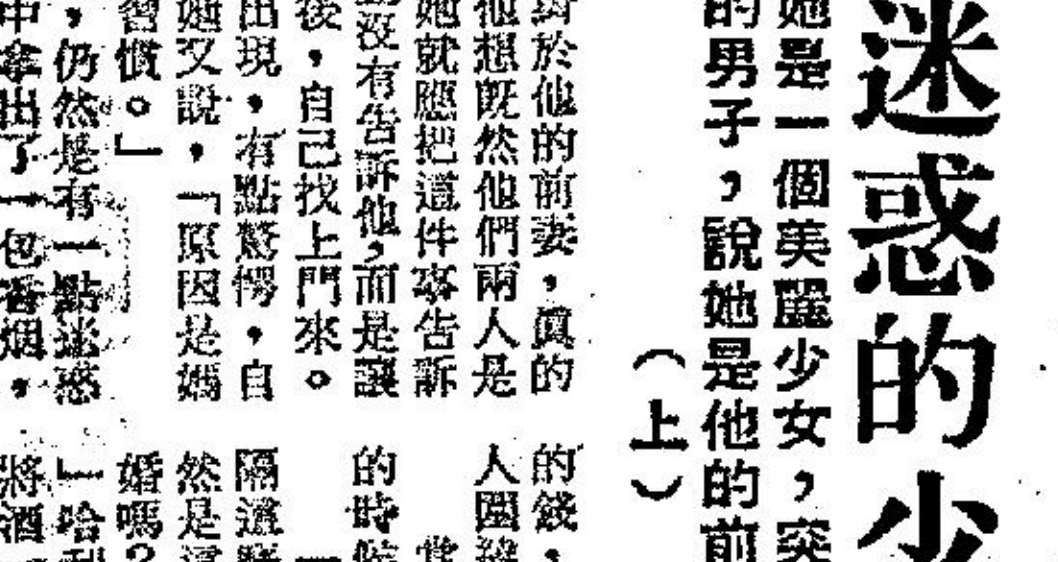 迷惑的少
她是一個美麗少女，突
的男子，說她是他的前
（上）
於他的前妻，真的
他想既然他們兩人是
她就應把這件事告訴
沒有告訴他，而是讓
後，自己找上門來。
出現，有點驚愕，自
她又說，「原因是媽
習慣。」
，仍然是有一點迷惑
中拿出了一包香烟，
的錢，
人圍
的時候
隔
然是這
婚嗎？
」哈利
將酒